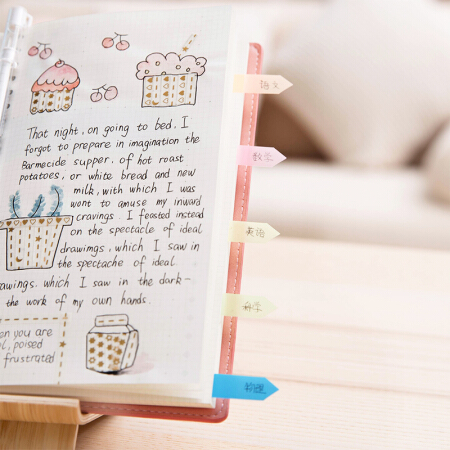 That night, on going to bed, I
forgot to prepare in imagination the
Barmecide supper, of hot roast
potatoes, or white bread and new
milk, with which I was
wont to amuse my inward
cravings. I feasted instead
on the spectacle of ideal
drawings, which I saw in
the spectache of ideal
awings. which I saw in the dark-
the work of my own hands.
en you are
l, poised
frustrated
语文
数学
英语
科学
物理